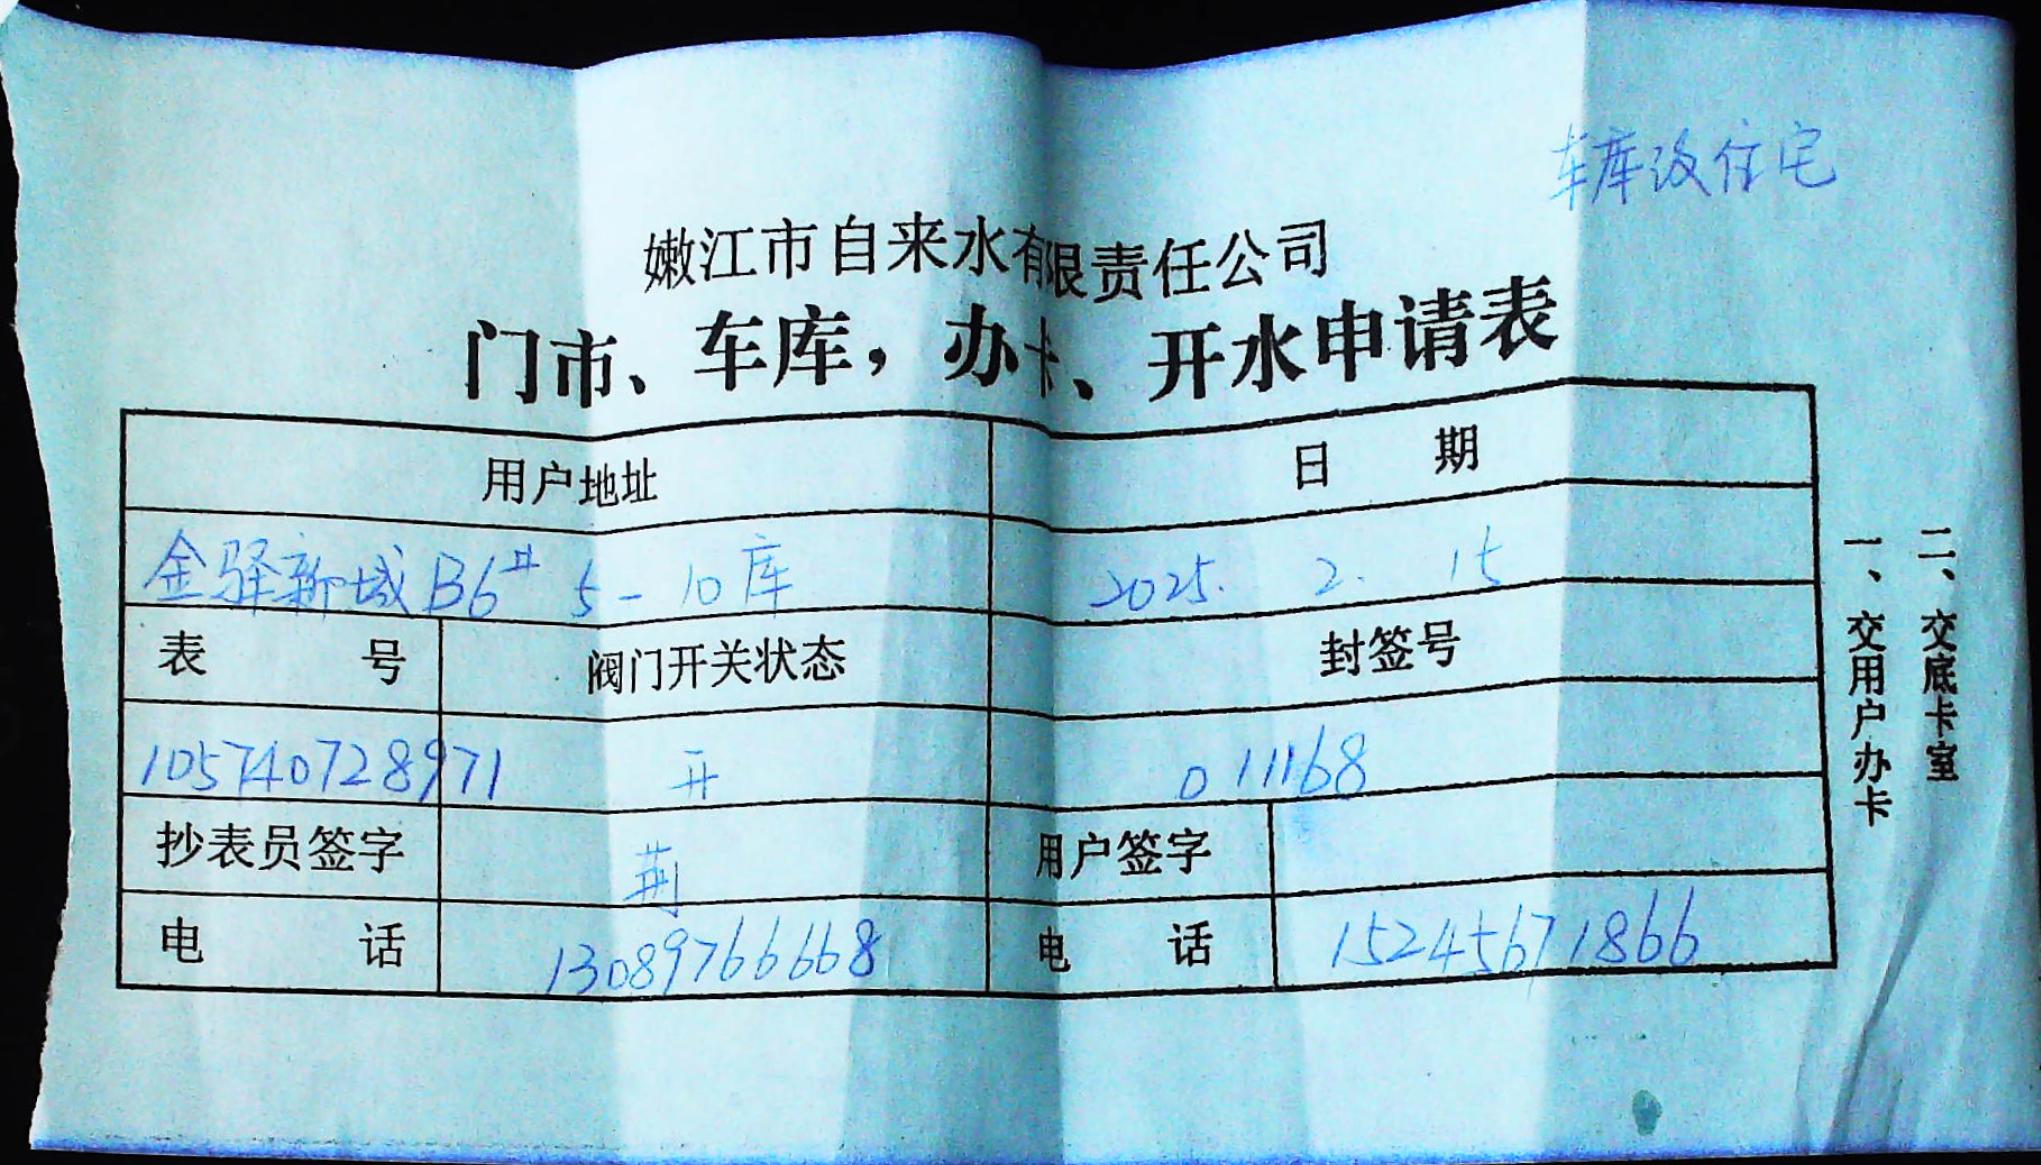 车库改住宅
嫩江市自来水有限责任公司
门市、车库，办卡、开水申请表
用户地址 日期
金驿新城B6# 5-10库 2025. 2. 15
表号 阀门开关状态 封签号
105740728971 开 011168
抄表员签字 荆 用户签字
电话 13089766668 电话 15245671866
一、交用户办卡
二、交底卡室